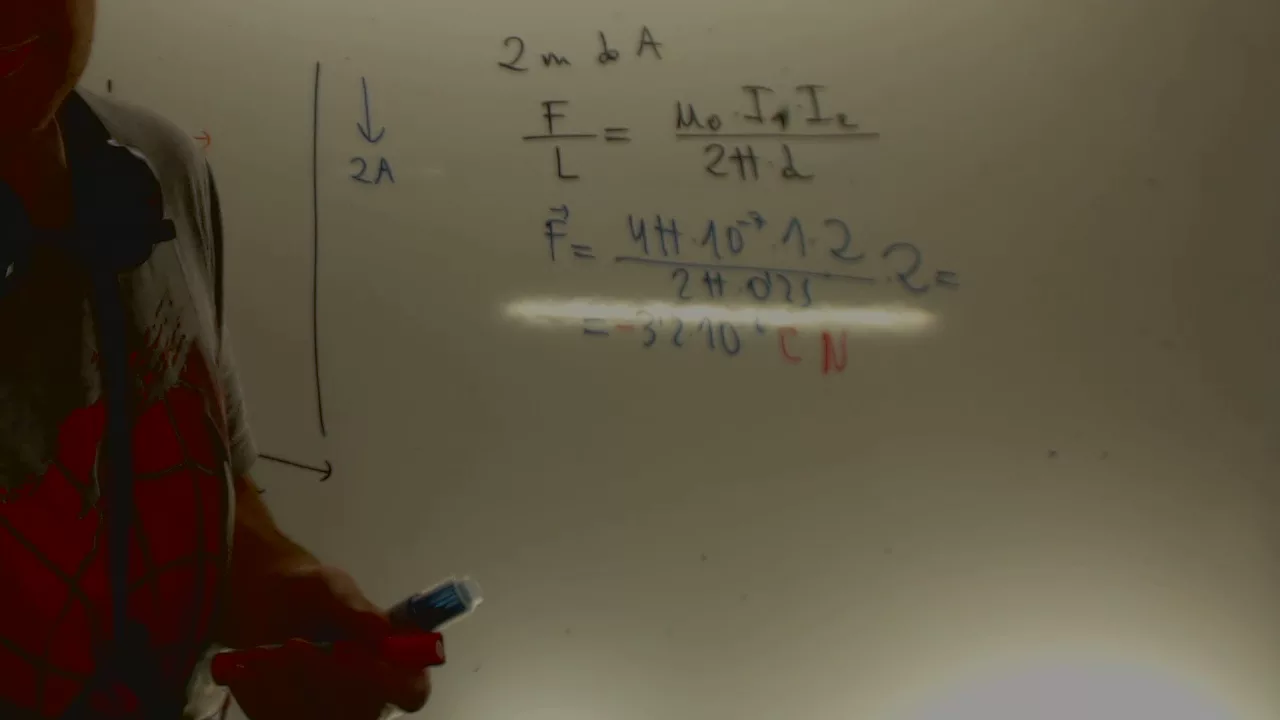 2 m do A
F/L = μ0·I1·I2 / 2π·d
2A
F⃗ = 4π·10⁻⁷·1·2 / 2π·0'25 ·2 =
= -3'2·10 N